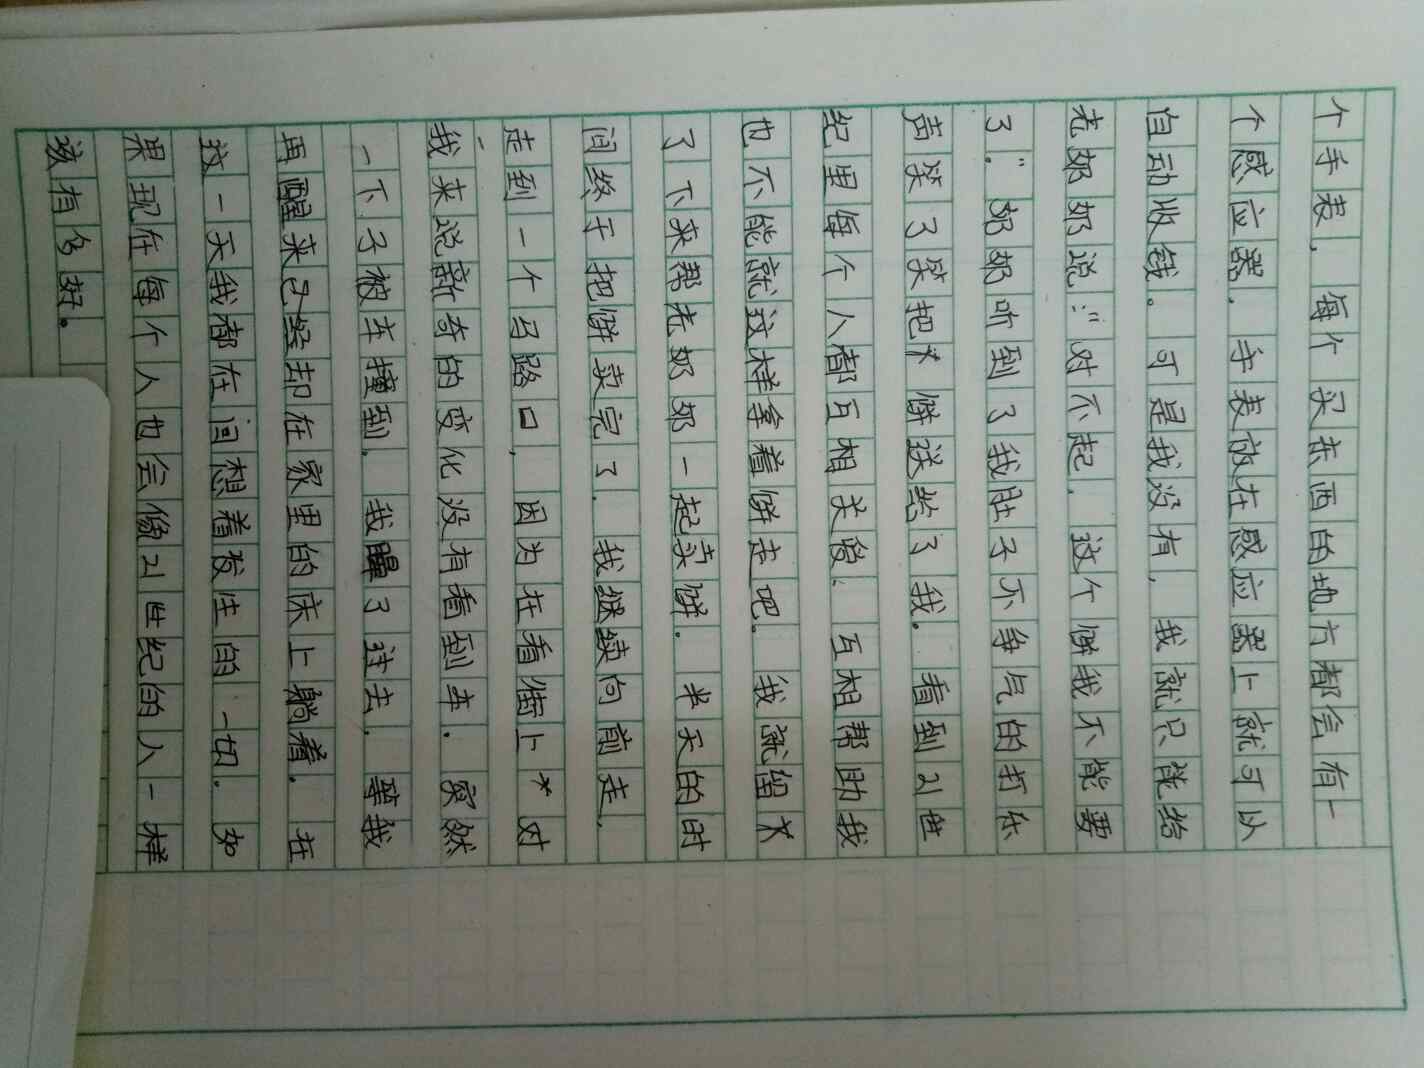 个手表，每个买东西的地方都会有一
个感应器．手表放在感应器上就可以
自动收钱。可是我没有，我就只能给
老奶奶说：“对不起，这个饼我不能要
了．”奶奶听到了我肚子不争气的打尔
声笑了笑把饼送给了我．看到21世
纪里每个人都互相关爱．互相帮助我
也不能就这样拿着饼走吧．我就留
了下来帮老奶奶一起卖饼．半天的时
间终于把饼卖完了．我继续向前走，
走到一个马路口，因为在看街上对
我来说新奇的变化没有看到车．突然
一下子被车撞到．我晕了过去．等我
再醒来已经却在家里的床上躺着．在
这一天我都在回想着发生的一切．如
果现在每个人也会像21世纪的人一样
该有多好．